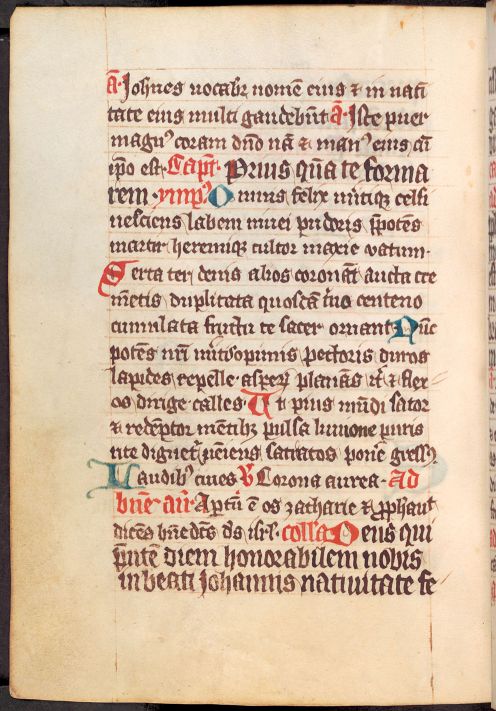 A· Johnes uocabr nomē eius ⁊ in nati
tate eius multi gaudebūt A· Iste puer
magnꝰ coram dn̄o nā ⁊ manꝰ eius cū
ip̄o est· Capit· Prius q̄ua te forma
rem· ympꝰ O nimis felix meritiq; celsi
nesciens labem niuei pudoris p̄potēs
martir heremiq; cultor maxie vatum·
Serta ter denis alios coronāt aucta cre
mētis duplicata quosdā trino centeno
cumulata fructu te sacer ornant Nūc
potēs nr̄i meritis opimis pectoris duros
lapides repelle asperū planās it̄ ⁊ flex
os dirige calles· Ut pius mūdi sator
⁊ redēptor mentibꝫ pulsa liuuione puris
rite dignet̄ ueniens sacratos pon̄e gressꝰ
Laudibꝰ ciues V Corona aurea· Ad
bn̄e an̄· Aptū ē os zacharie ⁊ ꝓphaut
dicēs bn̄edctꝰ ds̄ isrl̄· colla Deus qui
p̄ntē diem honorabilem nobis
in beati Johannis natiuitate fe